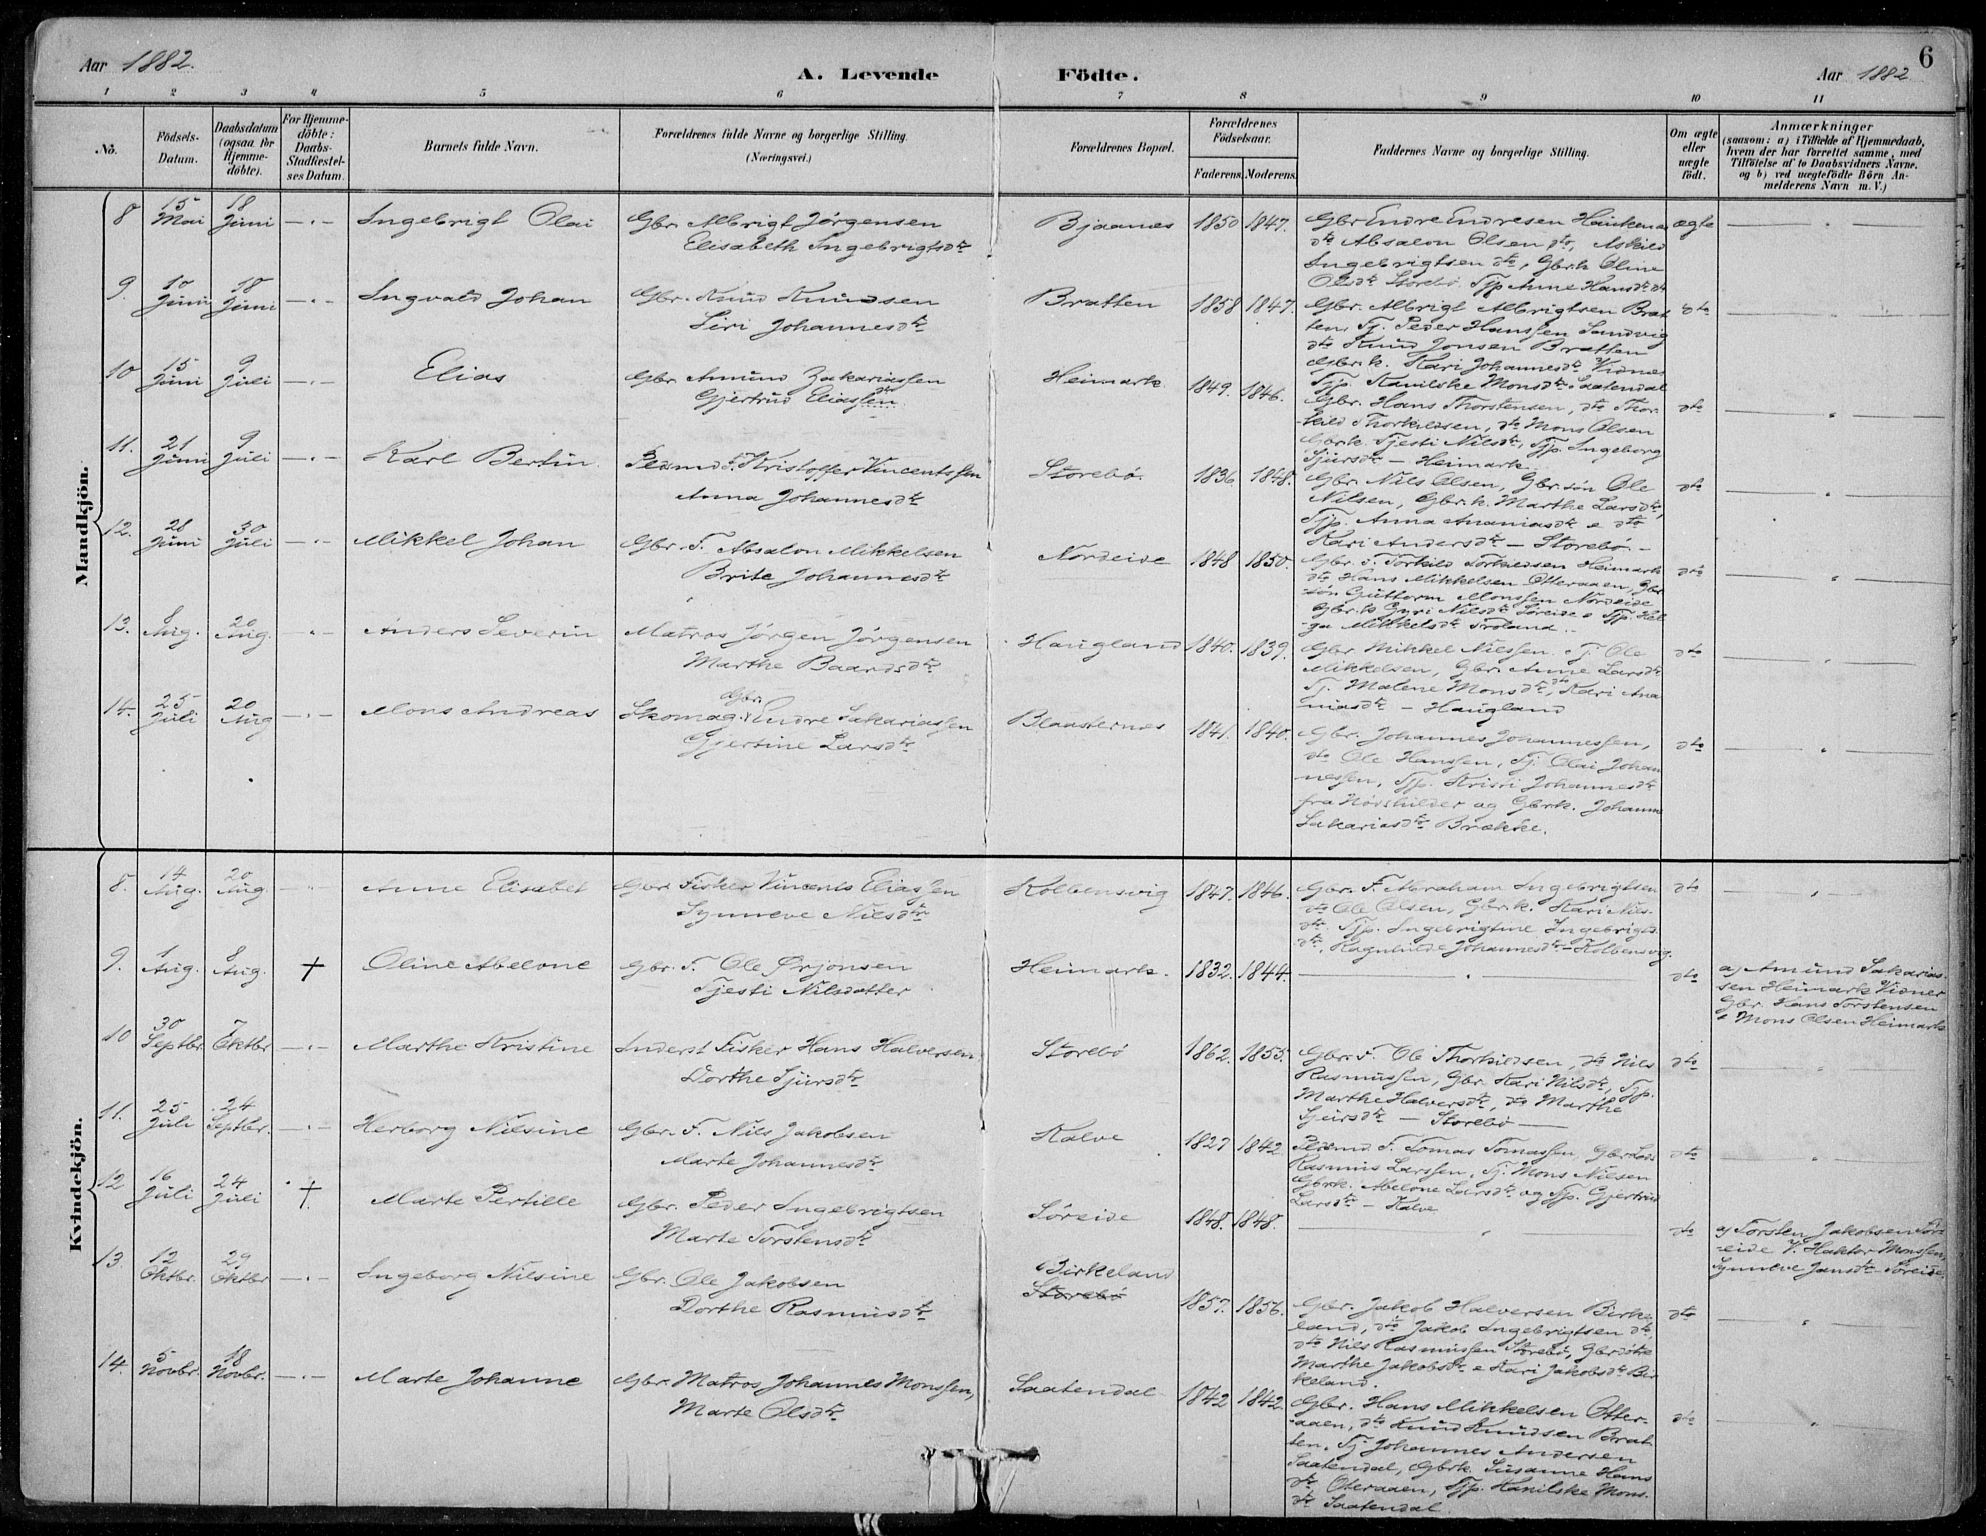 Aar 1882.
A. Levende Födte.
Aar 1882
6
1 2 3 4 5 6 7 8 9 10 11
No.
Födsels-Datum.
Daabsdatum (ogsaa for Hjemme-döbte).
For Hjemme-döbte: Daabs-Stadfæstel-ses Datum.
Barnets fulde Navn.
Forældrenes fulde Navne og borgerlige Stilling. (Næringsvei.)
Forældrenes Bopæl.
Forældrenes Födselsaar.
Faderens. Moderens.
Faddernes Navne og borgerlige Stilling.
Om ægte eller uægte födt.
Anmærkninger
(saasom: a) i Tilfælde af Hjemmedaab, hvem der har forrettet samme, med Tilföielse af to Daabsvidners Navne. og b) ved uægtefödte Börn Anmelderens Navn m. V.)
Mandkjön.
8 15 Mai 18 Juni Ingebrigt Olai
Gbr. Albrigt Jörgensen
Elisabeth Ingebrigtsdtr
Bjaanes 1850 1847.
Gbr Endre Endresen Haukenæs
dto Absalon Olsen dto, Askild
Ingebrigtsen dto, Gbr.k Oline
Olsdtr Storebö Tjp Anne Hansdtr dto
ægte
9. 10 Juni 18 Juni Ingvald Johan
Gbr. Knud Knudsen
Siri Johannesdtr
Bratten 1858 1847.
Gbr. Albrigt Albrigtsen Brat-
ten, Tj. Peder Hanssen Sandvig
dto Knud Jonsen Bratten
Gbr.k. Kari Johannesdtr Vidnes
Tjp. Kanilske Monsdtr Saatendal
dto
10 15 Juni 9 Juli Elias
Gbr Amund Zakariassen
Gjertrud Eliassen dtr
Heimark 1849. 1846.
Gbr. Hans Thorstensen, dto Thor-
kild Thorkildsen, dto Mons Olsen
Gbrk Tjesti Nilsdtr, Tjp. Ingeborg
Sjursdtr — Heimark
dto
11. 21 Juni 9 Juli Karl Bertin
Pedmd F. Kristoffer Vincentssen
Anna Johannesdtr
Storebö. 1836 1848.
Gbr. Nils Olsen, Gbr.sön Ole
Nilsen, Gbr.k. Marthe Larsdtr,
Tjp. Anna Ananiasdtr e dto
Kari Andersdtr — Storebö. —
dto
12. 28 Juni 30 Juli Mikkel Johan
Gbr. F. Absalon Mikkelsen
Brite Johannesdtr
Nordeide 1848 1850.
Gbr. F. Torkild Torkildsen Heimark
dto Hans Mikkelsen Otteraaen, Gbr
sön Guttorm Monssen Nordeide
Gbr.k Guri Nilsdtr Söreide e Tjp. Hel-
ga Mikkelsdtr Troland.
dto
13. 8 Aug. 20 Aug. Anders Severin
Matros Jörgen Jörgensen
Marthe Baardsdtr
Haugland 1840. 1839.
Gbr. Mikkel Nilssen. Tj. Ole
Mikkelsen, Gbr. Anne Larsdtr
Tj. Malene Monsdtr, dto Kari Ana-
niasdtr — Haugland
dto
14. 25 Juli 20 Aug Mons Andreas
Skomag. Gbr. Endre Sakariassen
Gjertine Larsdtr
Blaasternes 1841. 1840.
Gbr. Johannes Johannessen,
dto Ole Hanssen, Tj. Olai Johan-
nessen, Tjp. Kristi Johannesdtr
fra Nordskilder og Gbrk. Johanne
Sakariasdtr Brække.
dto
Kvindekjön.
8. 14 Aug. 20 Aug Anne Elisabet
Gbr. Fisker Vincents Eliassen
Synneve Nilsdtr
Kolbensvig 1847. 1846.
Gbr. F. Abraham Ingebrigtsen
dto Ole Olsen, Gbr.k. Kari Nils-
dtr Tjp. Ingebrigtine Ingebrigts-
dtr, Ragnhilde Johannesdtr — Kolbensvig
dto
9. 1 Aug. 8 Aug. † Oline Abelone
Gbr. F. Ole Ørjonsen
Tjesti Nilsdatter
Heimark. 1832. 1844
dto
a) Amund Sakarias-
sen Heimark Vidner
Gbr. Hans Torstensen
e Mons Olsen Heimark
10 30 Septbr. 7 Oktbr Marthe Kristine
Inderst Fisker Hans Halversen
Dorthe Sjursdtr
Storebö 1862. 1855.
Gbr. F. Ole Thorkildsen, dto Nils
Rasmussen, Gbr. Kari Nilsdtr, Tjp.
Marthe Halversdtr, dto Marthe
Sjursdtr — Storebö —
dto
11. 25 Juli 24 Septbr. Herborg Nilsine
Gbr. F. Nils Jakobsen
Marte Johannesdtr
Kalve 1827 1842
Pedmd F. Tomas Tomassen, Gbr
Rasmus Larssen, Tj. Mons Nilsen
Gbrk. Abelone Larsdtr og Tjp. Gjertrud
Larsdtr — Kalve
dto
12 16 Juli 24 Juli † Marte Pertille
Gbr. Peder Ingebrigtsen
Marte Torstensdtr
Söreide 1848. 1848.
dto
a) Torsten Jakobsen Sör-
eide V. Haktor Monssen,
Synneve Jansdtr Söreide.
13. 12 Oktbr. 29 Oktbr Ingeborg Nilsine
Gbr. Ole Jakobsen
Dorthe Rasmusdtr
Birkeland
Storebö
1857. 1856.
Gbr. Jakob Halversen Birke-
land, dto Jakob Ingebrigtsen dto,
dto Nils Rasmussen Storebö, Gbrdötre
Marthe Jakobsdtr e Kari Jakobsdtr Bir-
keland.
dto
14. 5 Novbr. 18 Novbr. Marte Johanne
Gbr. Matros Johannes Monssen,
Marte Olsdtr
Saatendal 1842 1842
Gbr. Hans Mikkelsen Otter-
aaen, dto Knud Knudsen Brat-
ten, Tj. Johannes Andersen
Saatendal, Gbrk. Susanne Hans
dtr Oteraaen, Tjp. Kanilske Mons-
dtr Saatendal.
dto